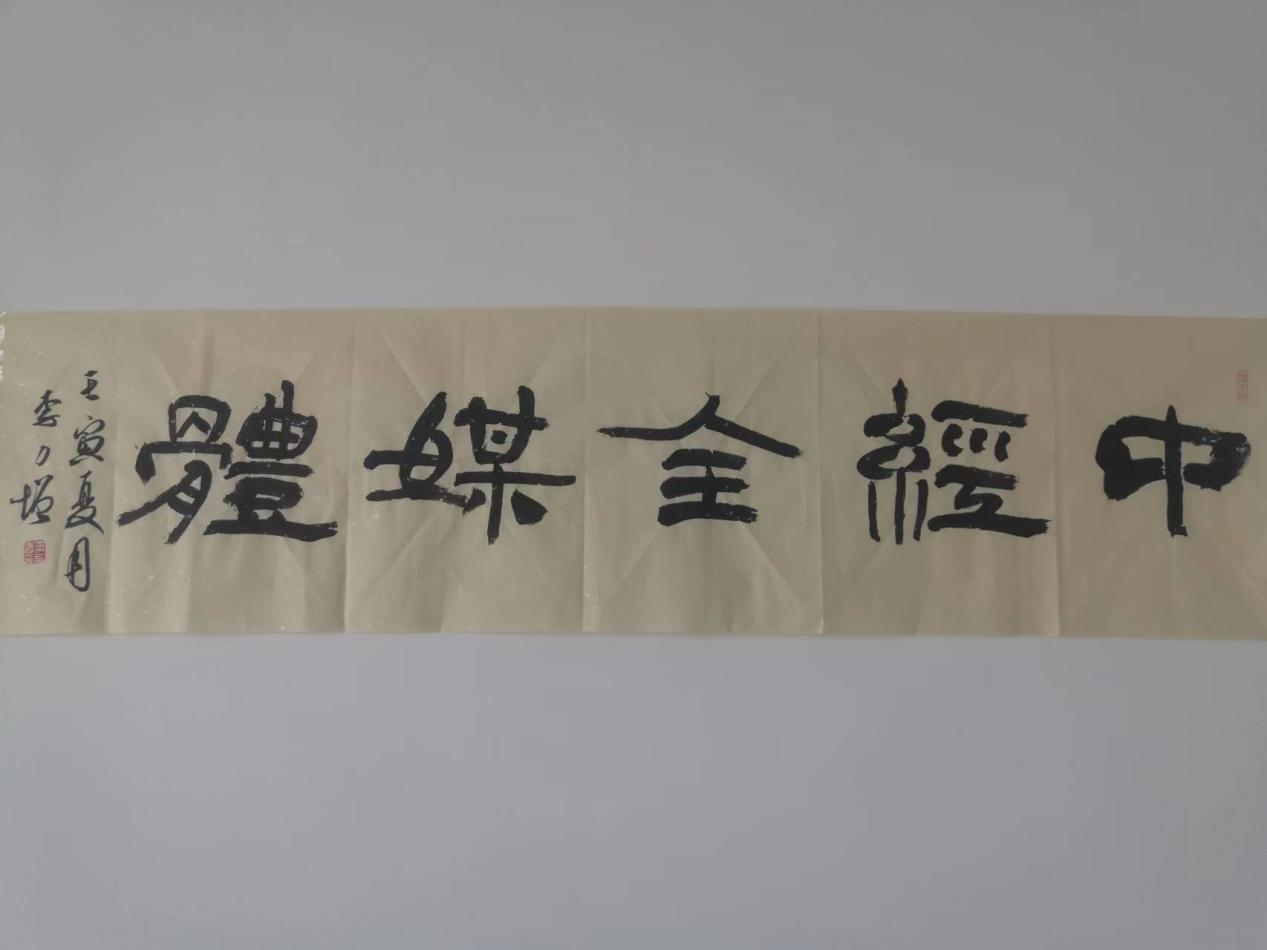 中經全媒體
壬寅夏月
李力增